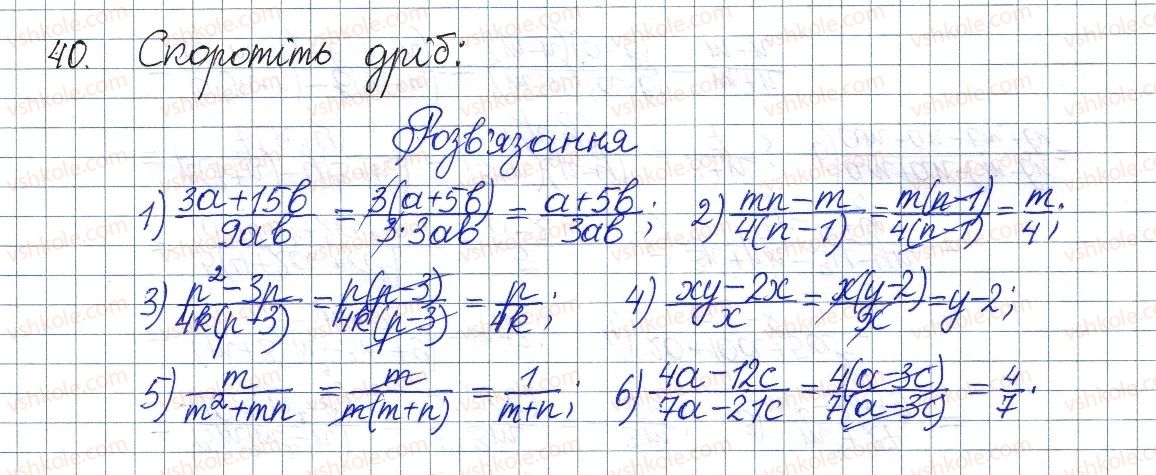 40. Скоротіть дріб:
Розв'язання
1) (3a+15b)/(9ab) = (3(a+5b))/(3·3ab) = (a+5b)/(3ab); 2) (mn−m)/(4(n−1)) = (m(n−1))/(4(n−1)) = m/4;
3) (p²−3p)/(4k(p+3)) = (p(p−3))/(4k(p−3)) = p/(4k); 4) (xy−2x)/x = (x(y−2))/x = y−2;
5) m/(m²+mn) = m/(m(m+n)) = 1/(m+n); 6) (4a−12c)/(7a−21c) = (4(a−3c))/(7(a−3c)) = 4/7.
vshkole.com